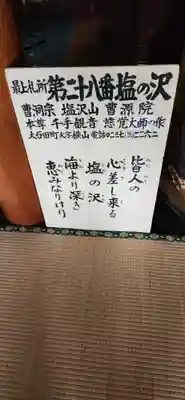 最上札所 第二十八番 塩の沢
曹洞宗 塩沢山 曹源院
本尊 千手観音 慈覚大師の作
大石田町大字横山 電話
皆人の
心差し来る
塩の沢
海より深き
恵みなりけり